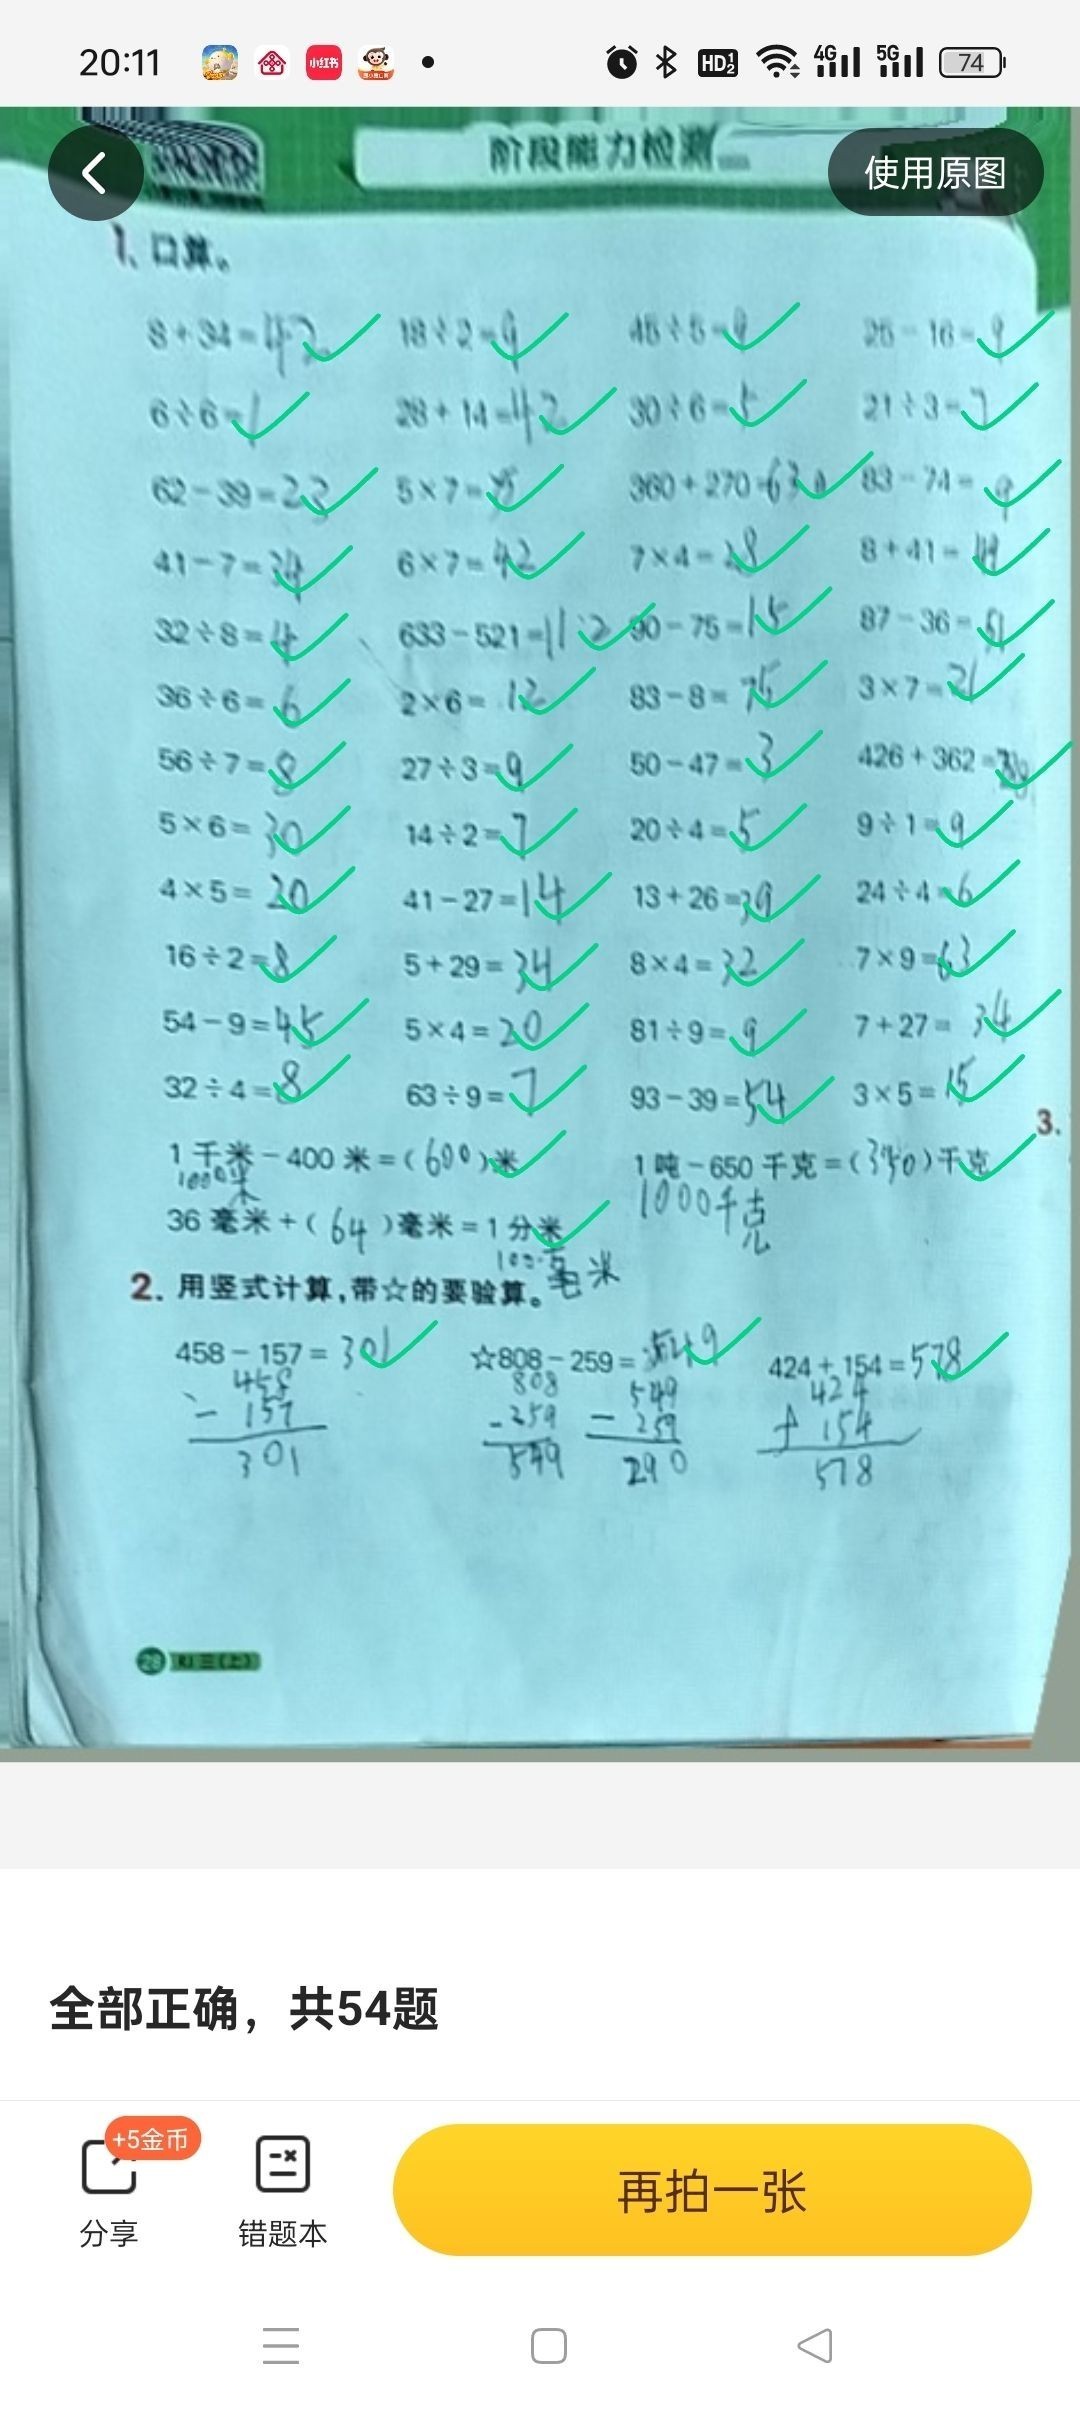 20:11 小红书 HD 4G 5G 74
阶段能力检测
使用原图
1、口算。
8+34=42 18÷2=9 45÷5=9 25-16=9
6÷6=1 28+14=42 30÷6=5 21÷3=7
62-39=23 5×7=35 360+270=630 83-74=9
41-7=34 6×7=42 7×4=28 8+41=49
32÷8=4 633-521=112 90-75=15 87-36=51
36÷6=6 2×6=12 83-8=75 3×7=21
56÷7=8 27÷3=9 50-47=3 426+362=788
5×6=30 14÷2=7 20÷4=5 9÷1=9
4×5=20 41-27=14 13+26=39 24÷4=6
16÷2=8 5+29=34 8×4=32 7×9=63
54-9=45 5×4=20 81÷9=9 7+27=34
32÷4=8 63÷9=7 93-39=54 3×5=15
3.
1千米-400米=(600)米 1吨-650千克=(350)千克
1000米 1000千克
36毫米+(64)毫米=1分米
100毫米
2.用竖式计算,带☆的要验算。
458-157=301 ☆808-259=549 424+154=578
458 808 549 424
-157 -259 -259 +154
301 549 290 578
28 RJ三(上)
全部正确，共54题
+5金币
分享 错题本 再拍一张